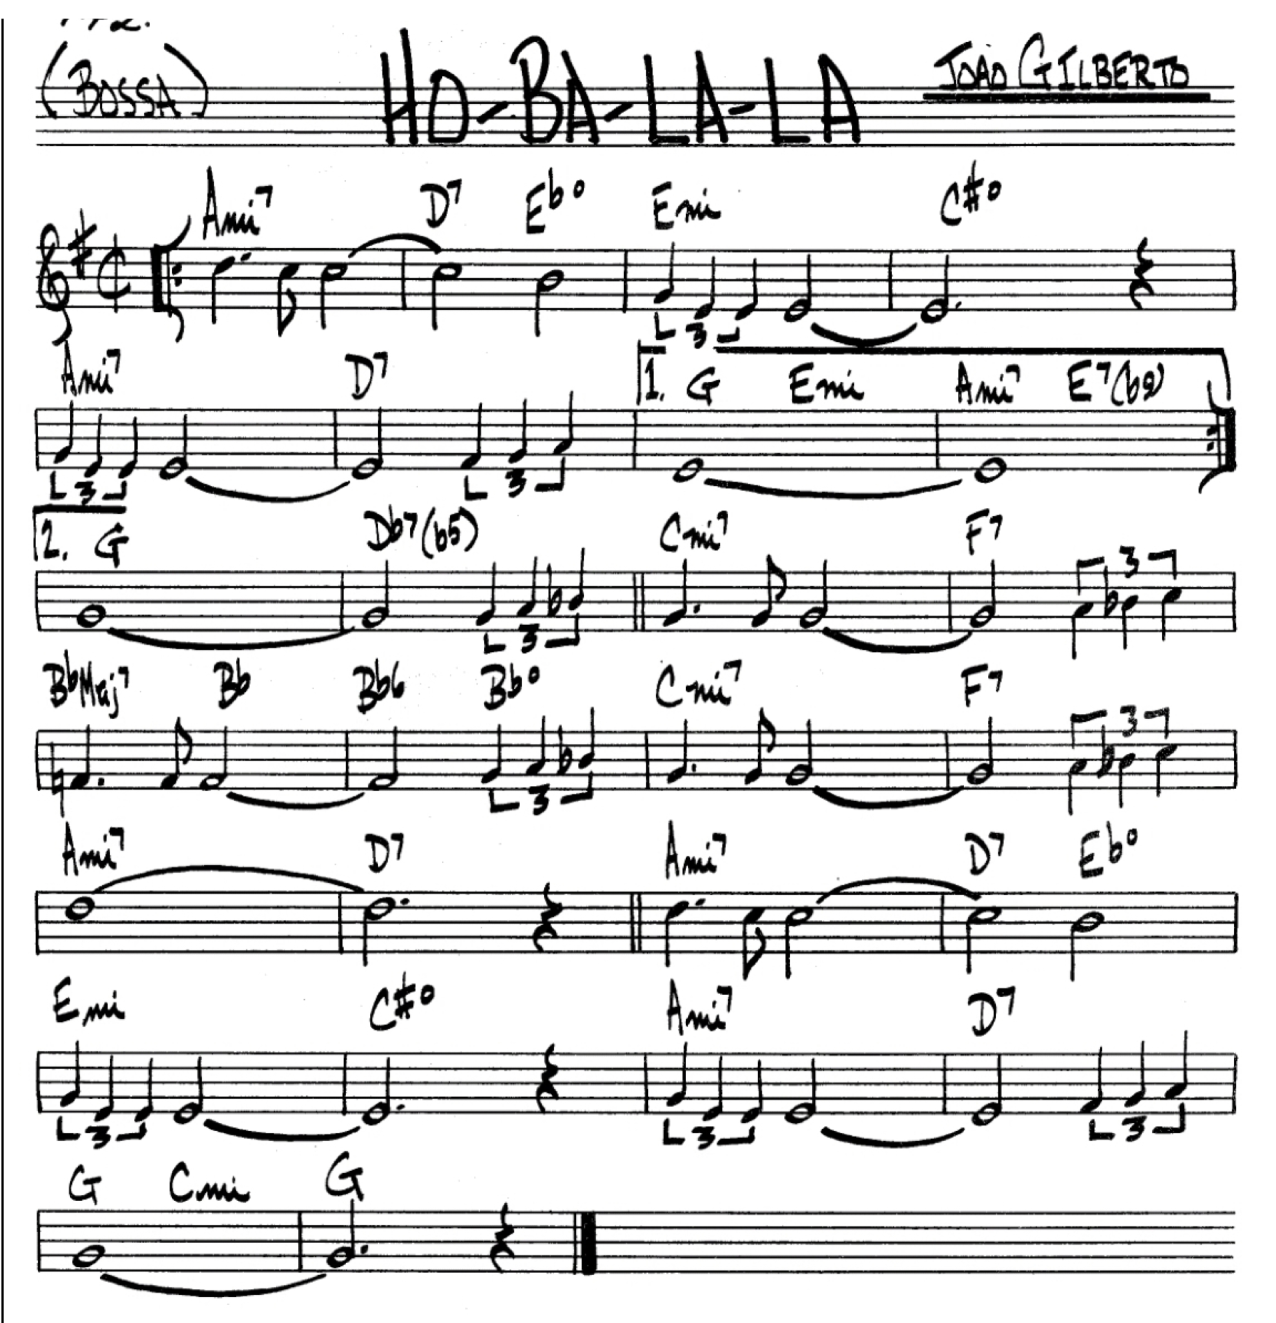 (BOSSA) HO-BA-LA-LA JOÃO GILBERTO
Ami7 D7 Ebo Emi C#o
3
Ami7 D7 1. G Emi Ami7 E7(b9)
3 3
2. G Db7(b5) Cmi7 F7
3 3
BbMaj7 Bb Bb6 Bbo Cmi7 F7
3 3
Ami7 D7 Ami7 D7 Ebo
Emi C#o Ami7 D7
3 3 3
G Cmi G